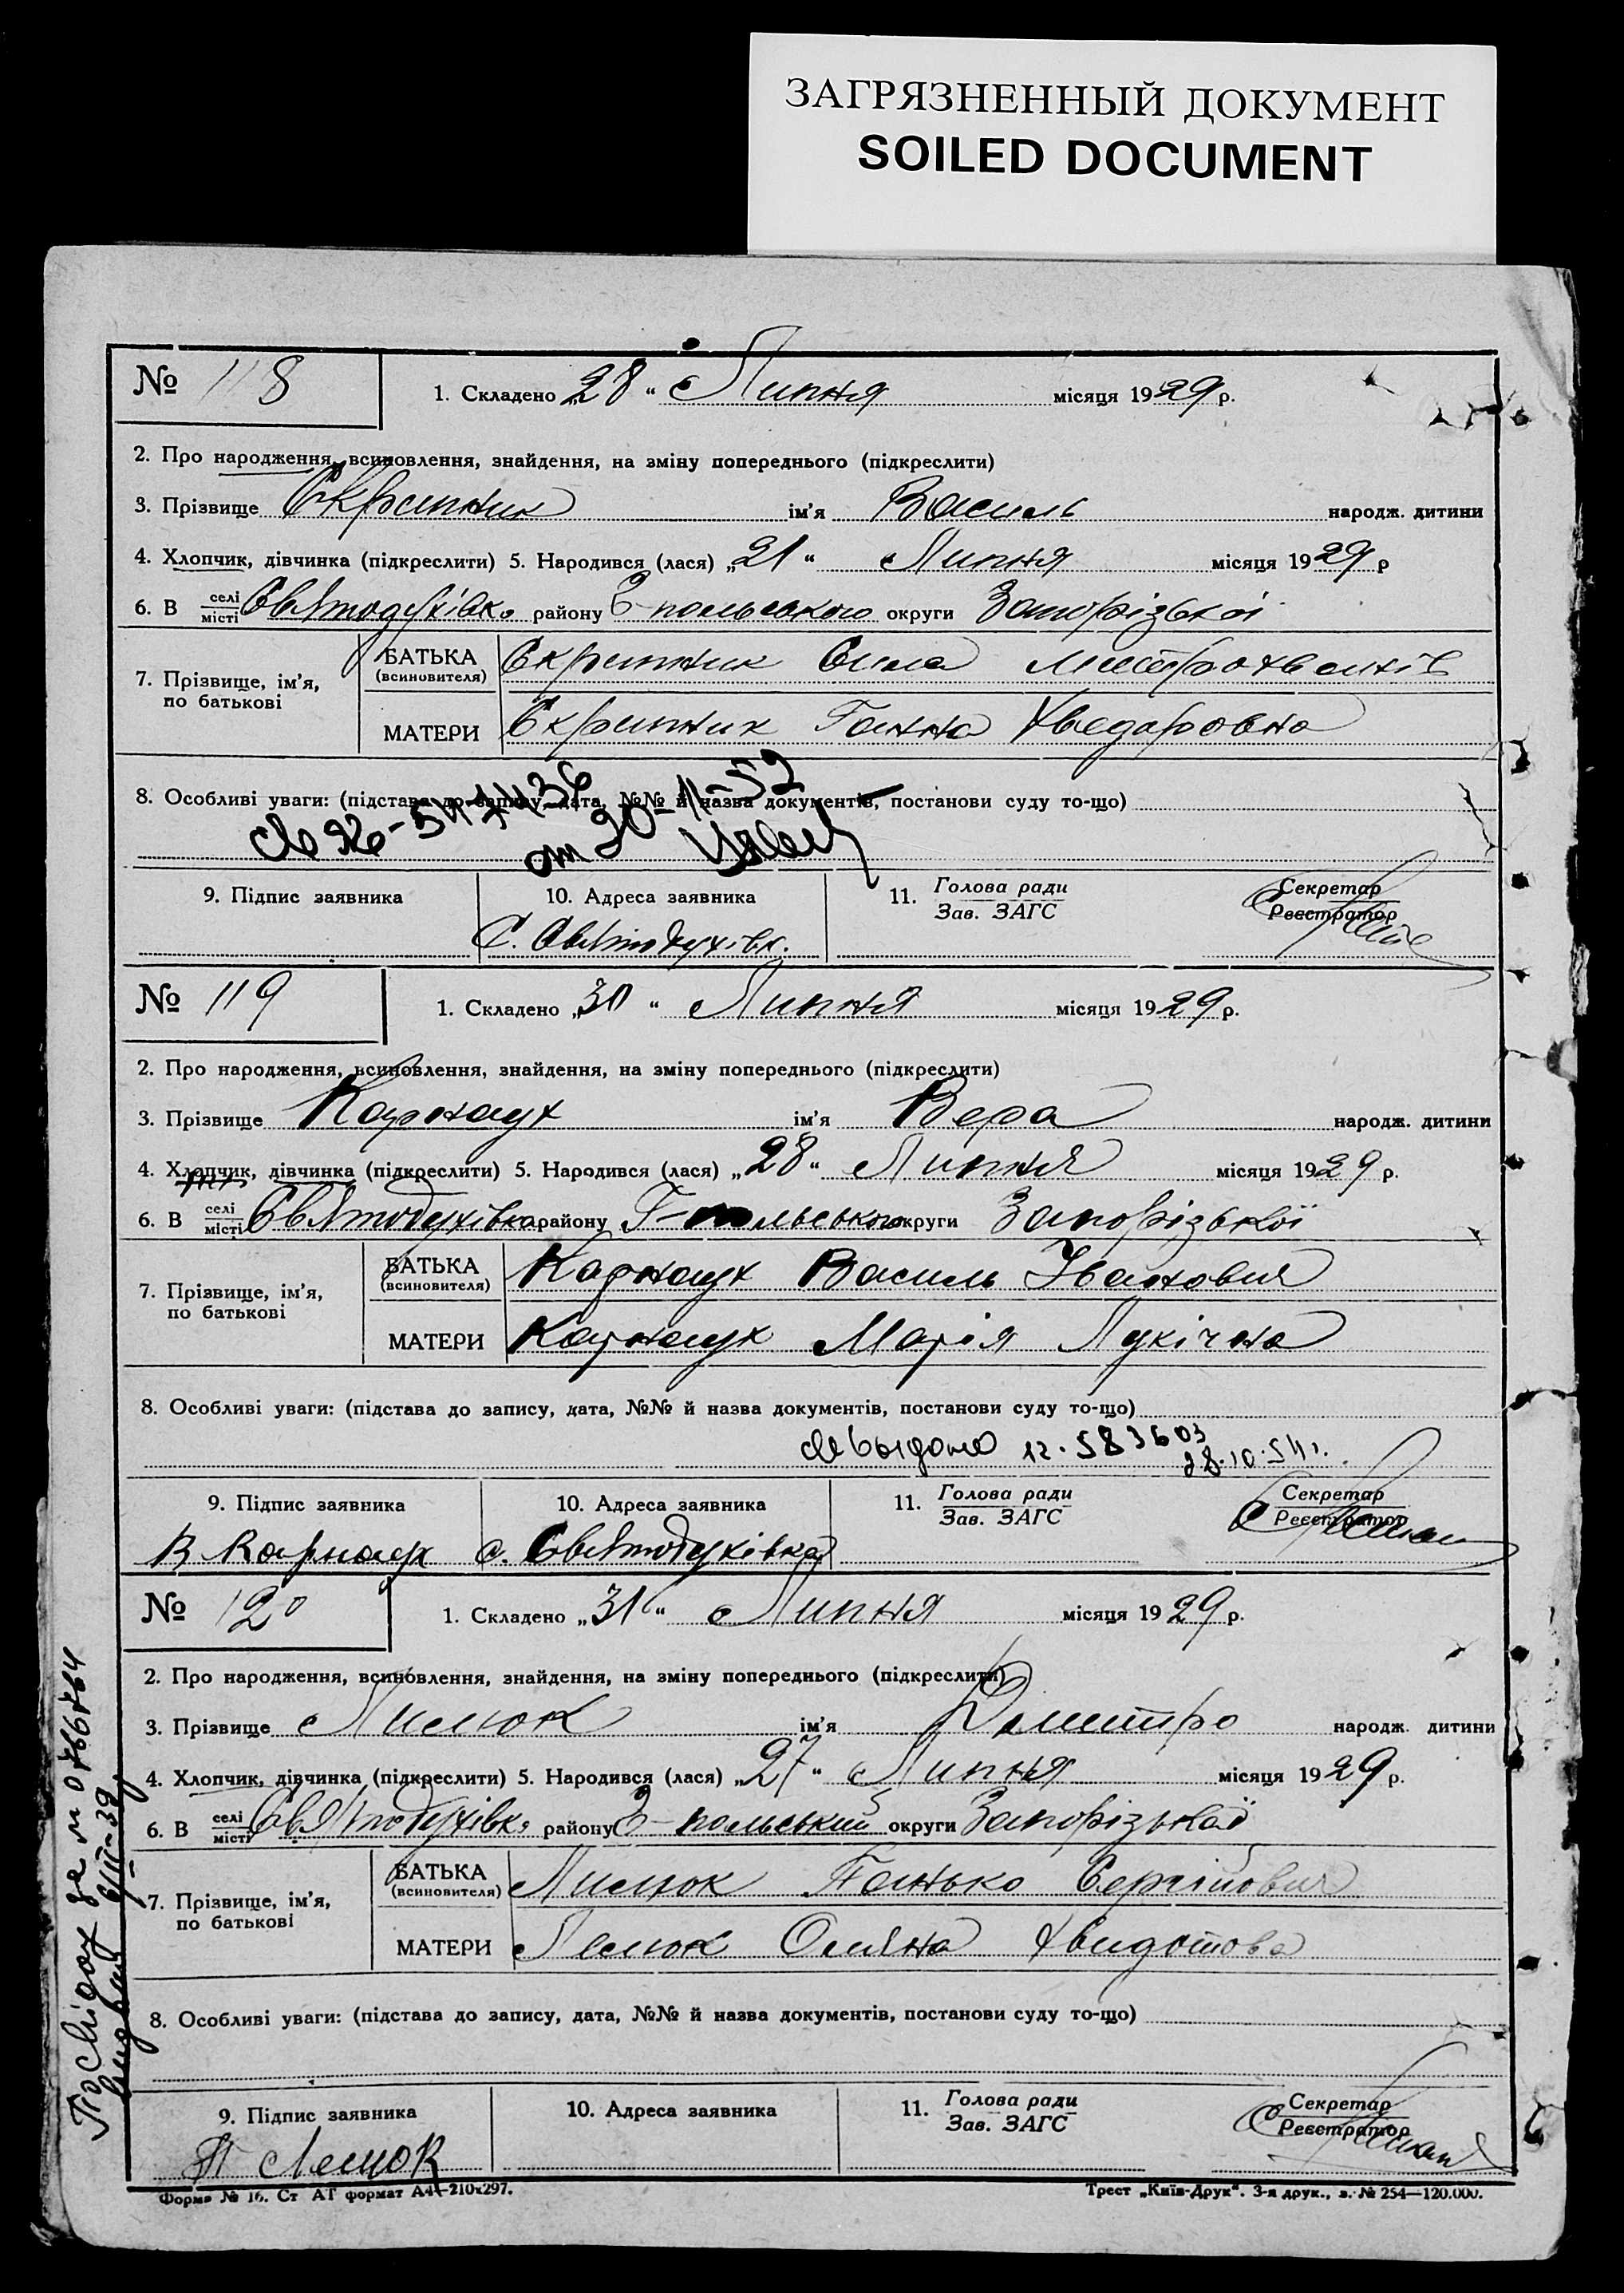 ЗАГРЯЗНЕННЫЙ ДОКУМЕНТ
SOILED DOCUMENT
№ 118 1. Складено „28“ Липня місяця 1929 р.
2. Про народження, всиновлення, знайдення, на зміну попереднього (підкреслити)
3. Прізвище Скрипник ім'я Василь народж. дитини
4. Хлопчик, дівчинка (підкреслити) 5. Народився (лася) „21“ Липня місяця 1929 р
6. В селі місті Святодухівка району З-польського округи Запорізької
БАТЬКА (всиновителя) Скрипник Сила
7. Прізвище, ім'я, по батькові
МАТЕРИ Скрипник Ганна Хведаровна
8. Особливі уваги: (підстава до запису, дата, №№ й назва документів, постанови суду то-що)
от 20-11-52
9. Підпис заявника 10. Адреса заявника 11. Голова ради Зав. ЗАГС Секретар Реєстратор
С. Святодухівк.
№ 119 1. Складено „30“ Липня місяця 1929 р.
2. Про народження, всиновлення, знайдення, на зміну попереднього (підкреслити)
3. Прізвище Карнаух ім'я Вера народж. дитини
4. Хлопчик, дівчинка (підкреслити) 5. Народився (лася) „28“ Липня місяця 1929 р.
6. В селі місті Святодухівка району округи Запорізької
БАТЬКА (всиновителя) Карнаух Василь Іванович
7. Прізвище, ім'я, по батькові
МАТЕРИ Карнаух Марія Лукічна
8. Особливі уваги: (підстава до запису, дата, №№ й назва документів, постанови суду то-що)
св выдано 12.583603
28.10.54 г.
9. Підпис заявника 10. Адреса заявника 11. Голова ради Зав. ЗАГС Секретар Реєстратор
В Карнаух с. Святодухівка
№ 120 1. Складено „31“ Липня місяця 1929 р.
2. Про народження, всиновлення, знайдення, на зміну попереднього (підкреслити)
3. Прізвище ім'я Дмитро народж. дитини
4. Хлопчик, дівчинка (підкреслити) 5. Народився (лася) „27“ Липня місяця 1929 р.
6. В селі місті Святодухівка району З-польський округи Запорізької
БАТЬКА (всиновителя) Панько Сергійович
7. Прізвище, ім'я, по батькові
МАТЕРИ
8. Особливі уваги: (підстава до запису, дата, №№ й назва документів, постанови суду то-що)
9. Підпис заявника 10. Адреса заявника 11. Голова ради Зав. ЗАГС Секретар Реєстратор
Форма № 16. Ст АГ формат А4—210х297. Трест „Київ-Друк“. 3-я друк., з. № 254—120.000.